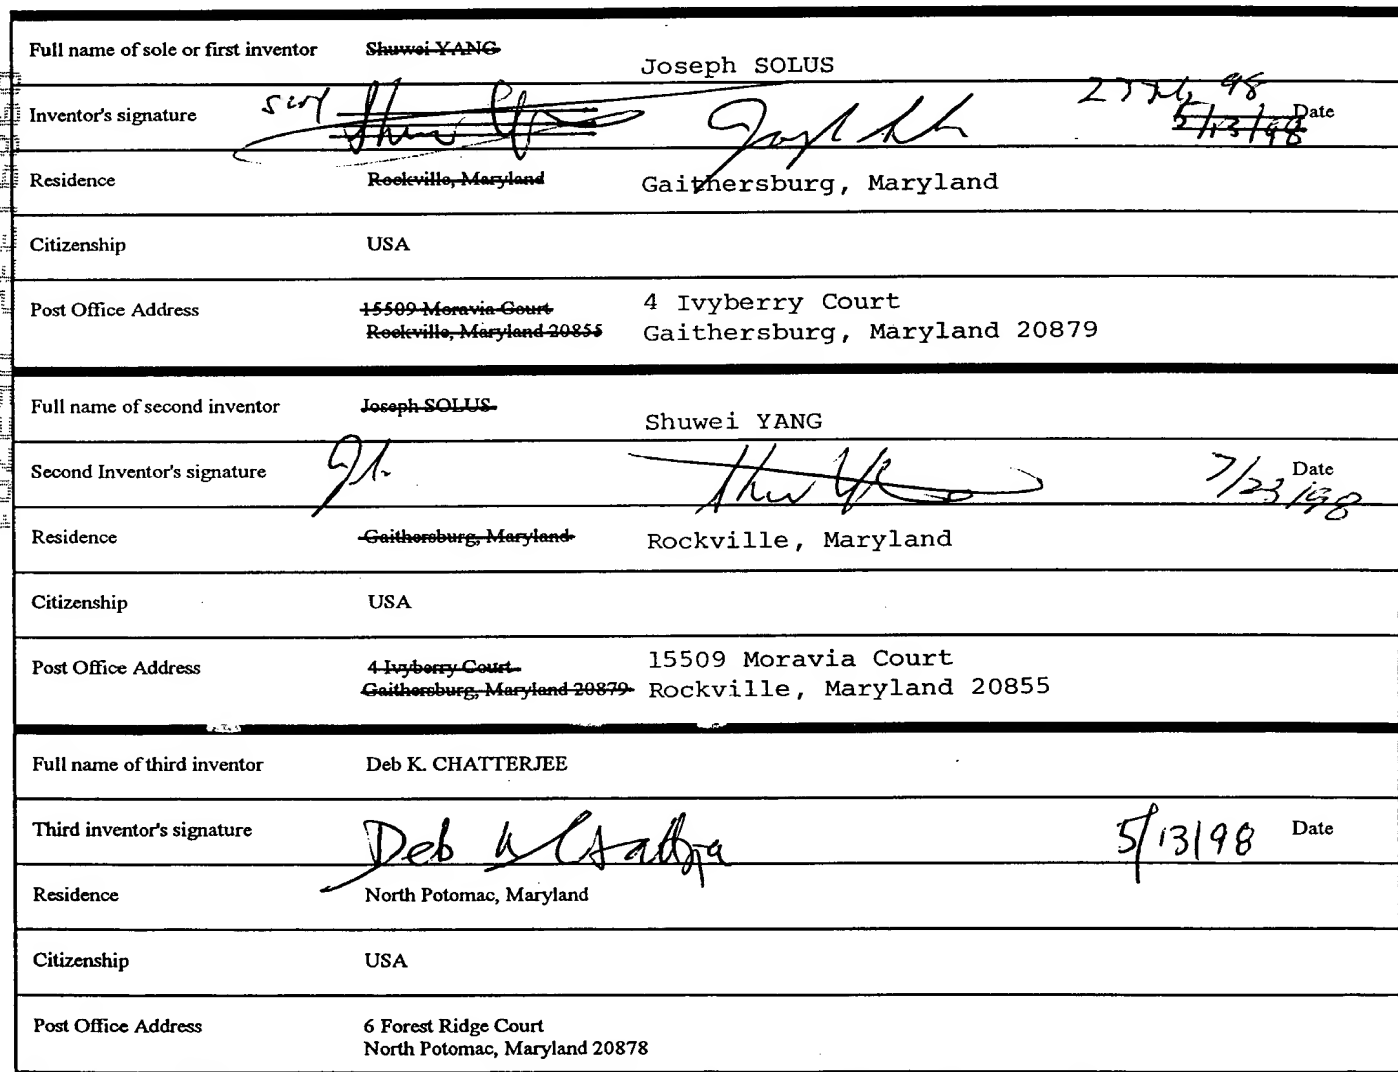 Full name of sole or first inventor Shuwei YANG Joseph SOLUS
Inventor's signature Date
5/13/98
Residence Rockville, Maryland Gaithersburg, Maryland
Citizenship USA
Post Office Address 15509 Moravia Court 4 Ivyberry Court
Rockville, Maryland 20855 Gaithersburg, Maryland 20879
Full name of second inventor Joseph SOLUS Shuwei YANG
Second Inventor's signature 7/23/98 Date
Residence Gaithersburg, Maryland Rockville, Maryland
Citizenship USA
Post Office Address 4 Ivyberry Court 15509 Moravia Court
Gaithersburg, Maryland 20879 Rockville, Maryland 20855
Full name of third inventor Deb K. CHATTERJEE
Third inventor's signature Deb K Chatterjee 5/13/98 Date
Residence North Potomac, Maryland
Citizenship USA
Post Office Address 6 Forest Ridge Court
North Potomac, Maryland 20878